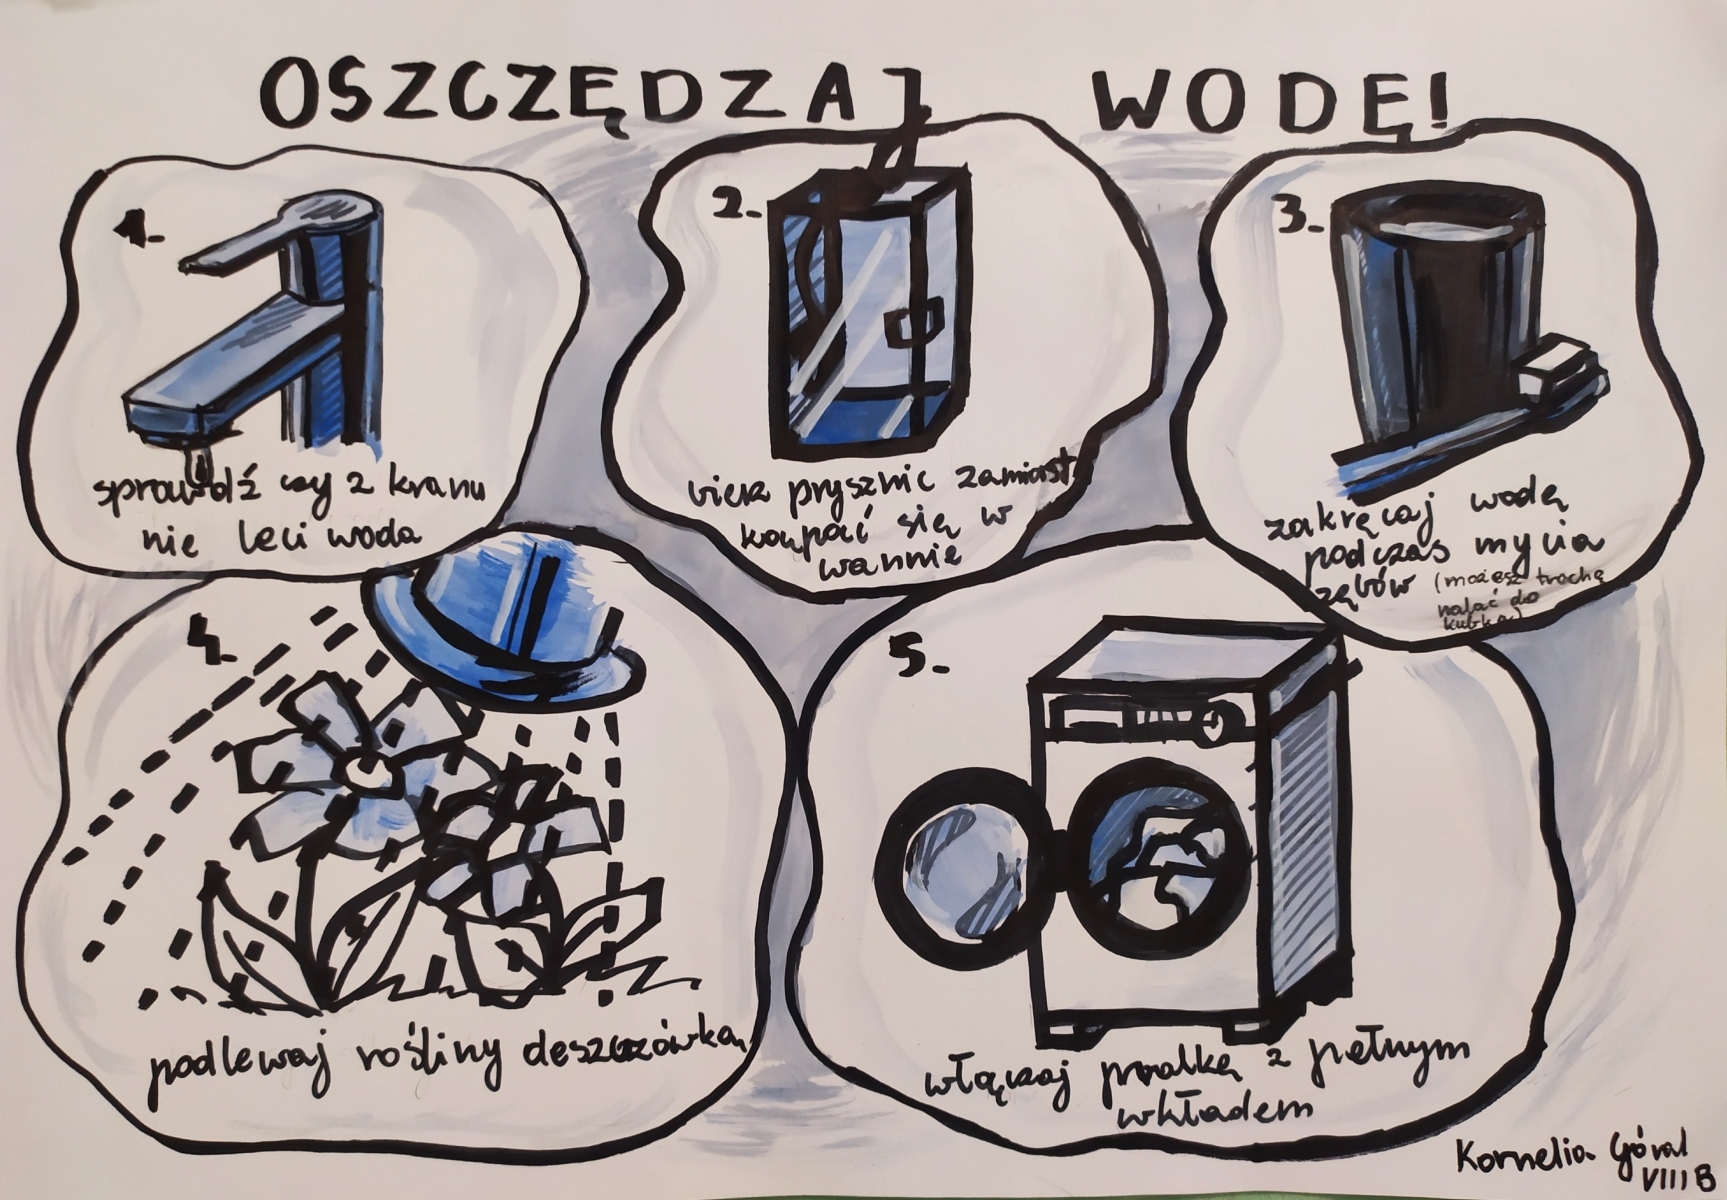 OSZCZĘDZAJ WODĘ!
1.
sprawdź czy z kranu
nie leci woda
2.
bierz prysznic zamiast
kąpać się w
wannie
3.
zakręcaj wodę
podczas mycia
zębów (możesz trochę
nalać do
kubka)
4.
podlewaj rośliny deszczówką
5.
włączaj pralkę z pełnym
wkładem
Kornelia Góral
VIII B